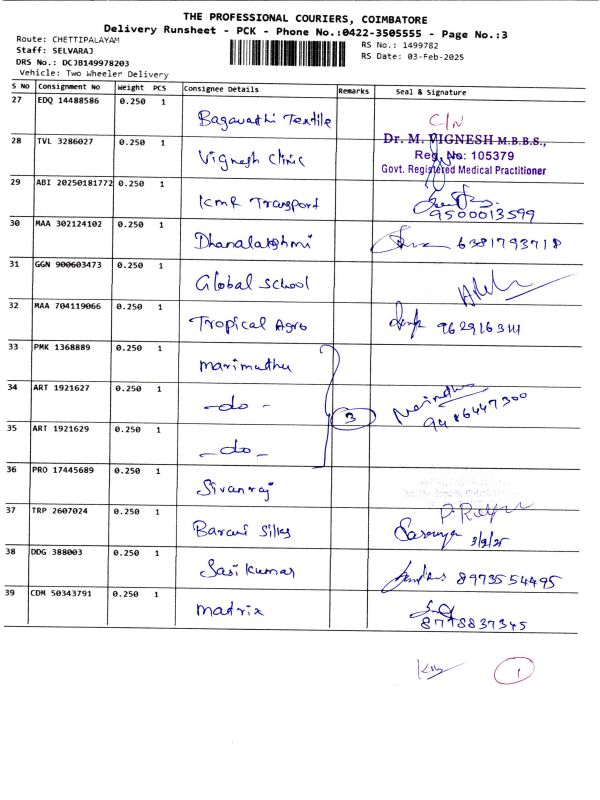 THE PROFESSIONAL COURIERS, COIMBATORE
Delivery Runsheet - PCK - Phone No.:0422-3505555 - Page No.:3
Route: CHETTIPALAYAM
RS No.: 1499782
Staff: SELVARAJ
RS Date: 03-Feb-2025
DRS No.: DCJB149978203
Vehicle: Two Wheeler Delivery
S No Consignment No Weight PCS Consignee Details Remarks Seal & Signature
27 EDQ 14488586 0.250 1 Bagavathi Textile C/N
28 TVL 3286027 0.250 1 Vignesh Clinic
Dr. M. VIGNESH M.B.B.S.,
Reg. No: 105379
Govt. Registered Medical Practitioner
29 ABI 20250181772 0.250 1 KMR Transport 9500013599
30 MAA 302124102 0.250 1 Dhanalakshmi 6381793718
31 GGN 900603473 0.250 1 Global School
32 MAA 704119066 0.250 1 Tropical Agro 9629163111
33 PMK 1368889 0.250 1 Marimuthu
34 ART 1921627 0.250 1 -do- 3 9486447300
35 ART 1921629 0.250 1 -do-
36 PRO 17445689 0.250 1 Sivanraj
37 TRP 2607024 0.250 1 Barani Silks Saranya 3/2/25
38 DDG 388003 0.250 1 Sasikumar 8973554495
39 CDM 50343791 0.250 1 Matrix 8778837345
1